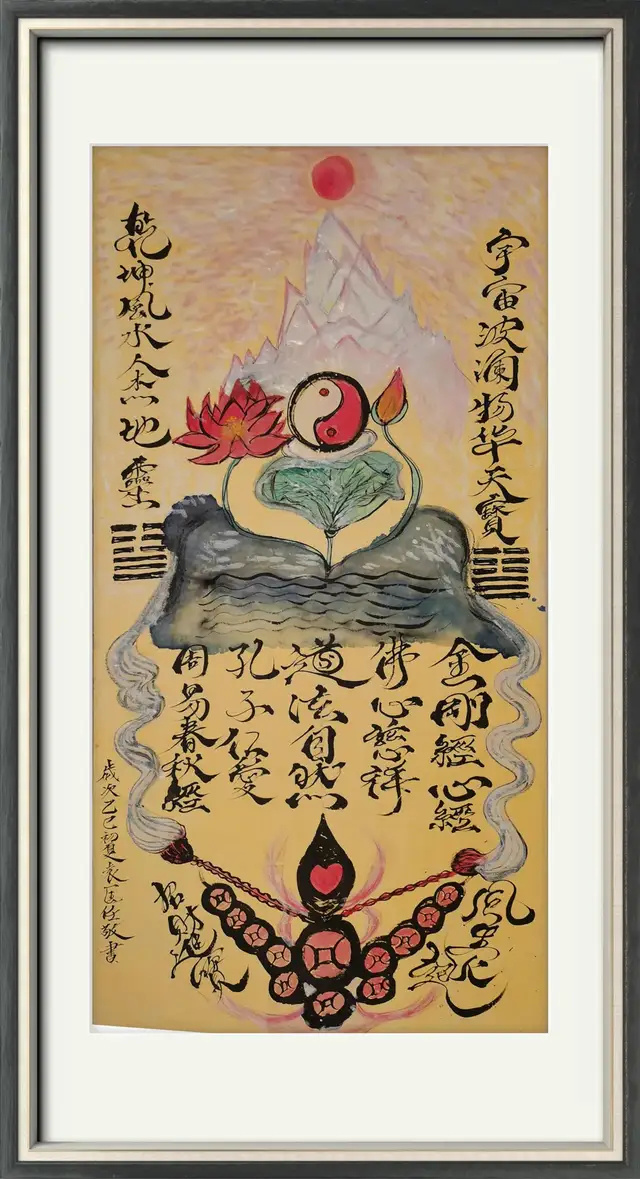 宇宙波澜物华天寶
乾坤風水人杰地靈
金剛經心經
佛心慈祥
道法自然
孔子仁愛
周易春秋經
風生水起
招財進寶
歲次乙巳初夏敬書